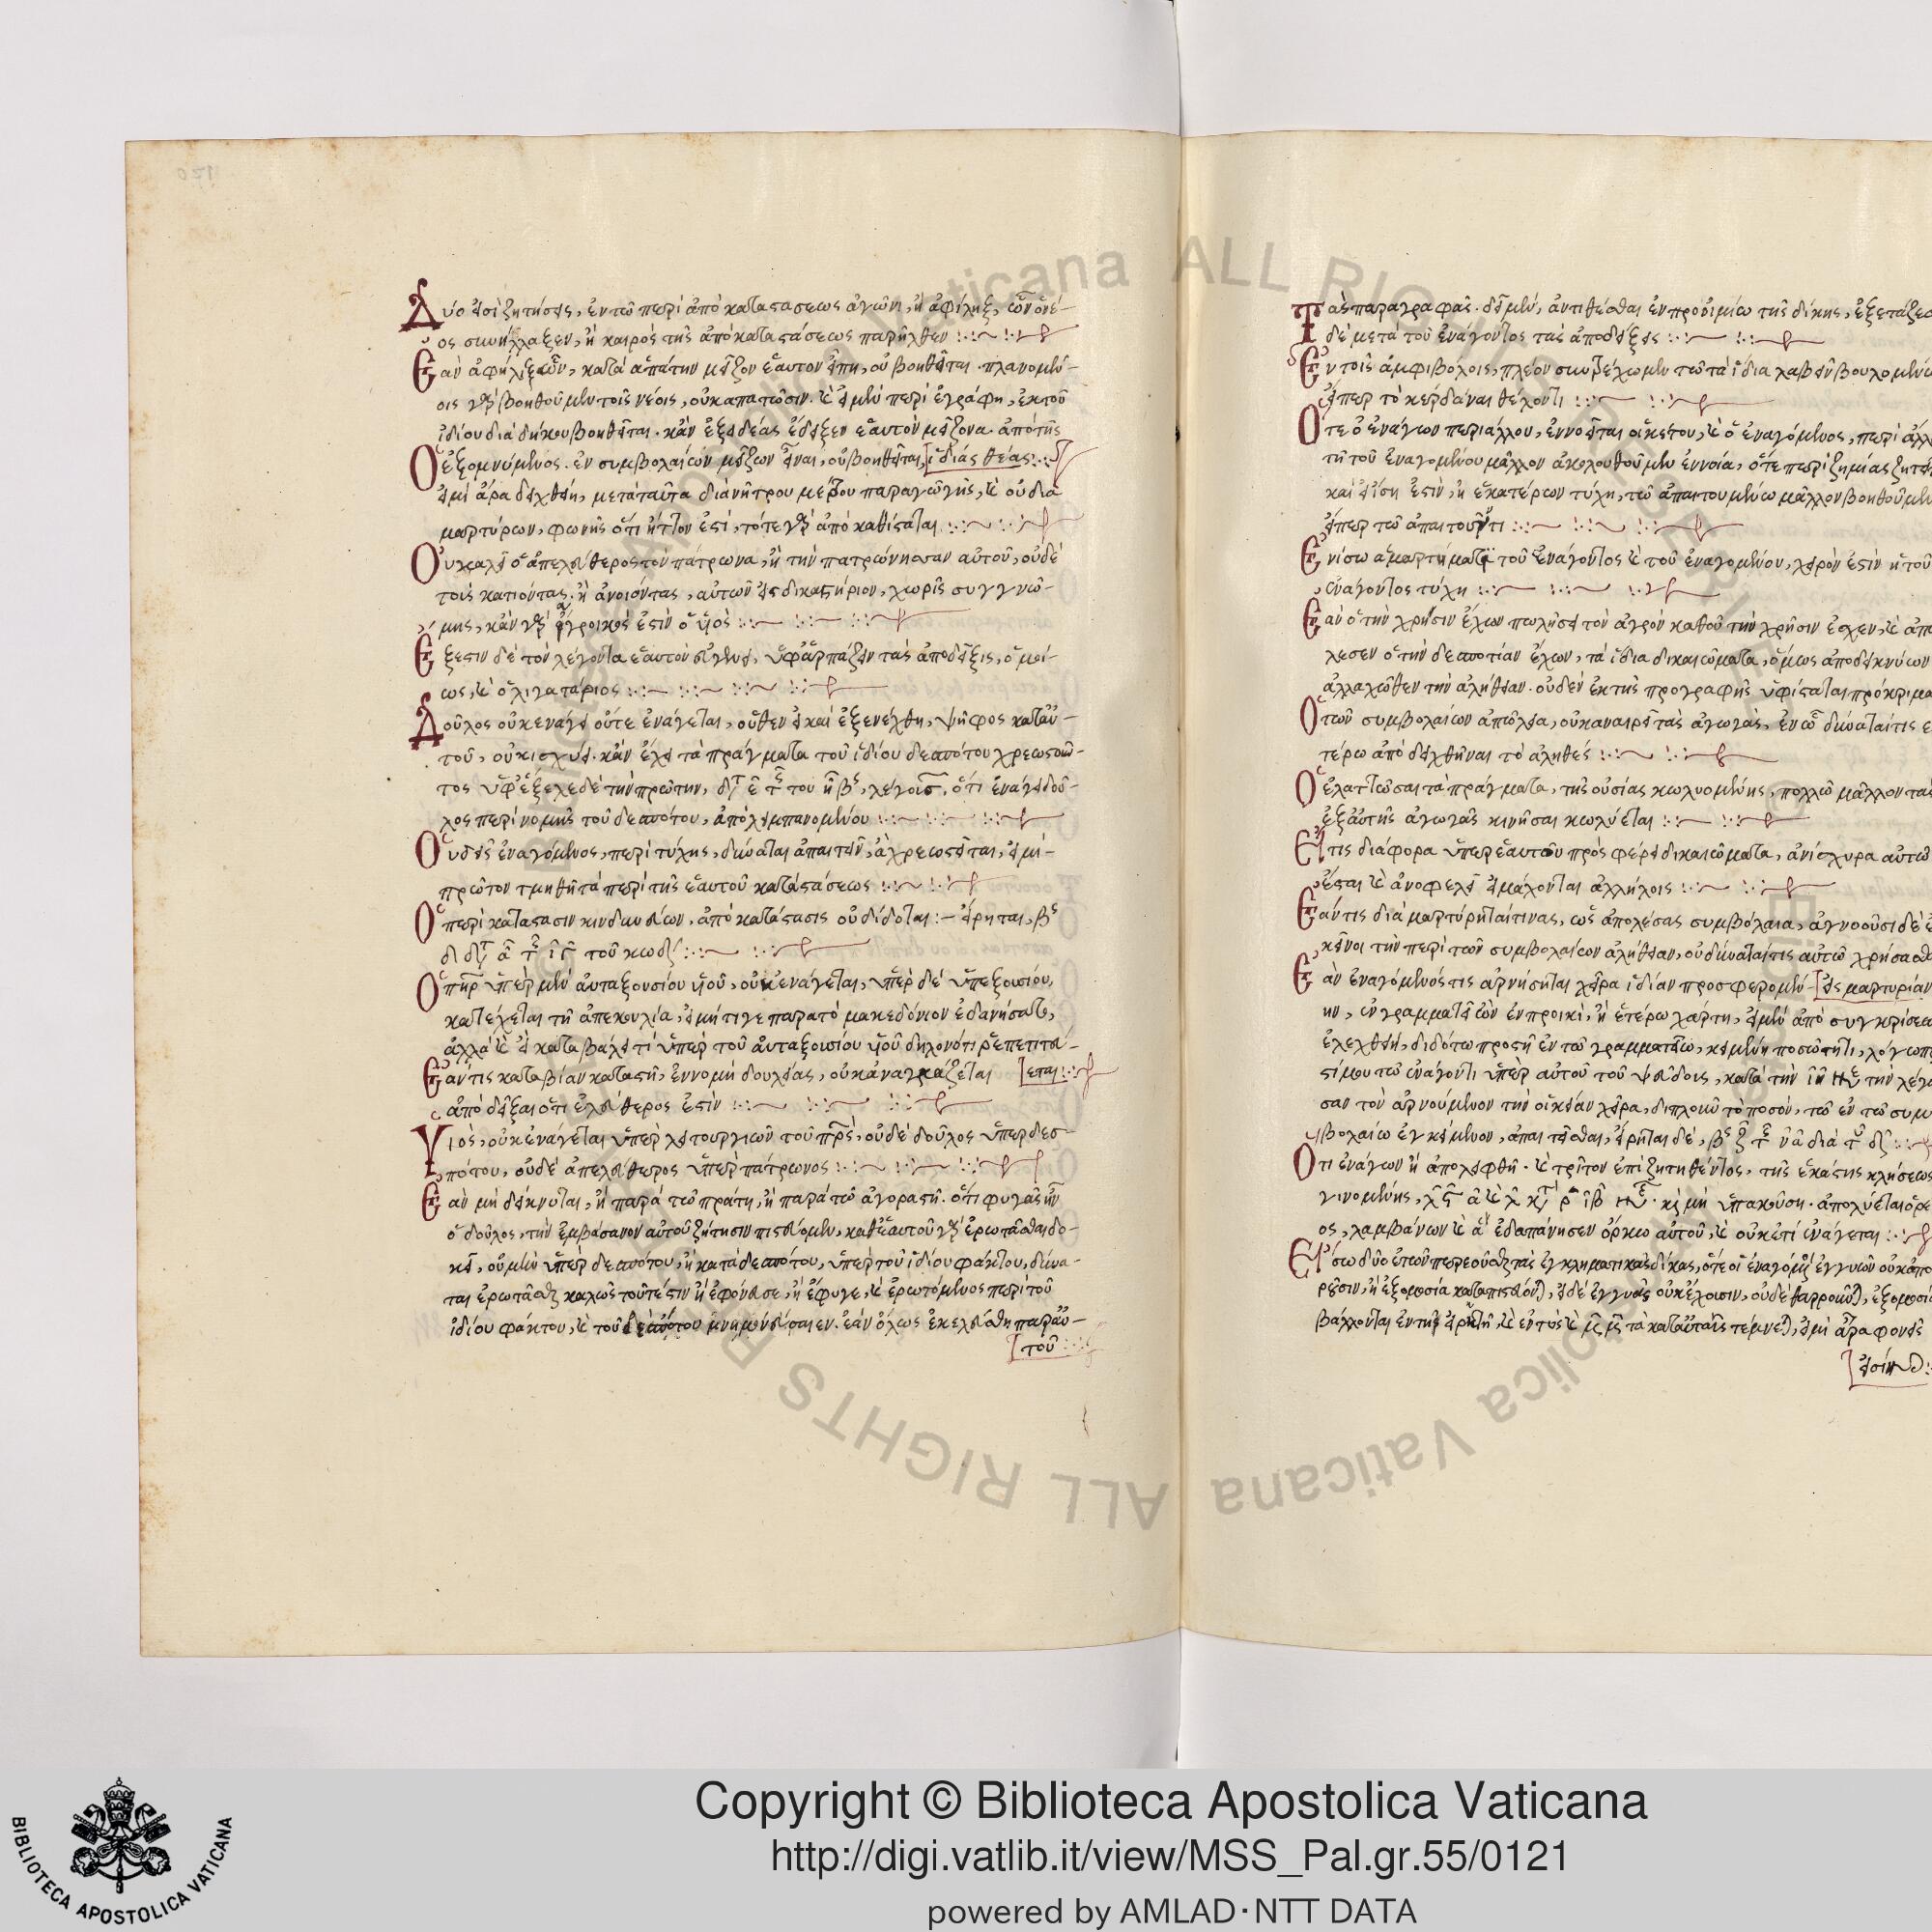 Δύο εἰσὶ ζητήσεις, ἐν τῷ περὶ ἀποκαταστάσεως ἀγῶνι, ἢ ἀφῆλιξ ὢν ὁ νέ-
ος συνήλλαξεν, ἢ καιρὸς τῆς ἀποκαταστάσεως παρῆλθεν
Ἐὰν ἀφήλιξ ὢν, κατὰ ἀπάτην μείζον ἑαυτὸν εἴπη, οὐ βοηθεῖται πλανομέν-
οις γὰρ βοηθοῦμεν τοῖς νέοις, οὐκ ἀπατῶσιν. καὶ εἰ μὲν περὶ ἐγράφη, ἐκ τοῦ
ἰδίου διαδήκου βοηθεῖται. κἂν ἐξ ἰδέας ἔδειξεν ἑαυτὸν μείζονα ἀπὸ τῆς
ἰδίας θέας
Ὁ ἐξομνύμενος ἐν συμβολαίῳ μείζων εἶναι, οὐ βοηθεῖται,
εἰ μὴ ἄρα δειχθείη, μετὰ ταῦτα διὰ παραγωγῆς, καὶ οὐ διὰ
μαρτύρων, φωνῆς ὅτι ἥττων ἐστί, τότε γὰρ ἀποκαθίσταται
Οὐ καλεῖ ὁ ἀπελεύθερος τὸν πάτρωνα, ἢ τὴν πατρώνησσαν αὐτοῦ, οὐδὲ
τοὺς κατιόντας ἢ ἀνιόντας, αὐτῶν εἰς δικαστήριον, χωρὶς συγγνώ-
μης, κἂν γὰρ ἄγροικός ἐστιν ὁ υἱὸς
Ἔξεστιν δὲ τὸν λέγοντα ἑαυτὸν εὐγενῆ, ὑφαρπάζειν τὰς ἀποδείξεις, ὁμοί-
ως, καὶ ὁ λιγατάριος
Δοῦλος οὐκ ἐνάγει οὔτε ἐνάγεται, ὅθεν εἰ καὶ ἐξενέχθη, ψῆφος κατ' αὐ-
τοῦ, οὐκ ἰσχύει. κἂν ἔχει τὰ πράγματα τοῦ ἰδίου δεσπότου χρεωστοῦν-
τος
λος περὶ νομῆς τοῦ δεσπότου, ἀπολιμπανομένου
Οὐδεὶς ἐναγόμενος, περὶ τύχης, δύναται ἀπαιτεῖν, ἃ χρεωστεῖται, εἰ μὴ
πρῶτον τμηθῇ τὰ περὶ τῆς ἑαυτοῦ καταστάσεως
Ὁ περὶ κατάστασιν κινδυνεύων, ἀποκατάστασις οὐ δίδοται: εἴρηται,
τοῦ κωδ
Ὁ πατὴρ ὑπὲρ μὲν αὐτεξουσίου υἱοῦ, οὐκ ἐνάγεται, ὑπὲρ δὲ ὑπεξουσίου,
κατέχεται τῇ ἀπεκουλία, εἰ μή τι γε παρὰ τὸ μακεδόνιον ἐδανήσατο,
ἀλλὰ καὶ εἰ καταβάλει τι ὑπὲρ τοῦ αὐταξουσίου υἱοῦ δηλονότι ῥεπετιτεύ-
εται
Ἐάν τις κατὰ βίαν καταστῇ, ἐν νομῇ δουλείας, οὐκ ἀναγκάζεται
ἀποδεῖξαι ὅτι ἐλεύθερος ἐστὶν
Υἱὸς, οὐκ ἐνάγεται ὑπὲρ λειτουργιῶν τοῦ πρς, οὐδὲ δοῦλος ὑπὲρ δεσ-
πότου, οὐδὲ ἀπελεύθερος ὑπὲρ πάτρωνος
Ἐὰν μὴ δείκνυται, ἢ παρὰ τῷ πράτῃ, ἢ παρὰ τῷ ἀγοραστῇ. ὅτι φυγὰς ἦν
ὁ δοῦλος, τὴν ἐμβάσανον αὐτοῦ ζήτησιν πιστεύομεν, καθ' ἑαυτοῦ γὰρ ἐρωτᾶσθαι δο-
κεῖ, οὐ μὴν ὑπὲρ δεσπότου, ἢ κατὰ δεσπότου, ὑπὲρ τοῦ ἰδίου φάκτου, δύνα-
ται ἐρωτᾶσθαι καλῶς τουτέστιν εἰ ἐφόνευσε, ἢ ἔφυγε, καὶ ἐρωτόμενος περὶ τοῦ
ἰδίου φάκτου, καὶ τοῦ δεσπότου μνημονεύσαιεν. ἐὰν ὅλως ἐκελεύσθη παρ' αὐ-
τοῦ
Τὰς παραγραφὰς δεῖ μὲν, ἀντιθέσθαι ἐν προοιμίῳ τῆς δίκης, ἐξετάζεσ
δὲ μετὰ τοῦ ἐνάγοντος τὰς ἀποδείξεις
Ἐν τοῖς ἀμφιβόλοις, πλέον συντρέχομεν τῷ τὰ ἴδια λαβεῖν βουλομένῳ
εἴπερ τὸ κερδᾶναι θέλοντι
Ὅτε ὁ ἐνάγων περὶ ἄλλου, ἐννοεῖται οἰκέτου, καὶ ὁ ἐναγόμενος, περὶ ἄλλ
τῇ τοῦ ἐναγομένου μᾶλλον ἀκολουθοῦμεν ἐννοίᾳ, ὅτε περὶ ζημίας ζητεῖ
καὶ εἰ ἴση ἐστὶν, ἡ ἑκατέρων τύχη, τῷ ἀπαιτουμένῳ μᾶλλον βοηθοῦμεν
εἴπερ τῷ ἀπαιτοῦντι
Ἐν ἴσῳ ἁμαρτήματι τοῦ ἐνάγοντος καὶ τοῦ ἐναγομένου, χείρων ἐστὶν ἡ τοῦ
ἐνάγοντος τύχη
Ἐὰν ὁ τὴν χρῆσιν ἔχων πωλήσει τὸν ἀγρὸν καθ' οὗ τὴν χρῆσιν ἔσχεν, καὶ ἀπ
λεσεν ὁ τὴν δεσποτίαν ἔχων, τὰ ἴδια δικαιώματα, ὅμως ἀποδεικνύων
ἀλλαχόθεν τὴν ἀλήθειαν. οὐδὲν ἐκ τῆς προγραφῆς ὑφίσταται πρόκριμα
Ὁ τῶν συμβολαίων ἀπώλεια, οὐκ ἀναιρεῖ τὰς ἀγωγὰς, ἐν ᾧ δύναταί τις ε
τέρω ἀποδειχθῆναι τὸ ἀληθές
Ὁ ἐλαττῶσαι τὰ πράγματα, τῆς οὐσίας κωλυομένης, πολλῷ μᾶλλον τὰς
ἐξ αὐτῆς ἀγωγὰς κινῆσαι κωλύεται
Εἴ τις διάφορα ὑπὲρ ἑαυτοῦ προσφέρει δικαιώματα, ἀνίσχυρα αὐτῷ
ἔσται καὶ ἀνωφελεῖ εἰ μάχονται ἀλλήλοις
Ἐάν τις διαμαρτύρηταί τινας, ὡς ἀπολέσας συμβόλαια, ἀγνοοῦσι δὲ ἐ
κεῖνοι τὴν περὶ τῶν συμβολαίων ἀλήθειαν, οὐ δύναταί τις αὐτῷ χρήσασθ
Ἐὰν ἐναγόμενός τις ἀρνήσηται χεῖρα ἰδίαν προσφερομέν- εἰς μαρτυρίαν
ην, ἐν γραμματείῳ ἐν προικὶ, ἢ ἑτέρῳ χάρτῃ, εἰ μὲν ἀπὸ συγκρίσεω
ἐλεχθείη, διδότω προστῇ ἐν τῷ γραμματείῳ, κειμένῃ ποσότητι, λόγῳ πρ
στίμου τῷ ἐνάγοντι ὑπὲρ αὐτοῦ τοῦ ψεύδους, κατὰ τὴν ιη τὴν λέγ
σαν τὸν ἀρνούμενον τὴν οἰκείαν χεῖρα, διπλοῦν τὸ ποσὸν, τῷ ἐν τῷ συμ
βολαίῳ ἐγκείμενον, ἀπαιτεῖσθαι, εἴρηται δὲ,
Ὅτι ἐνάγων ἢ ἀπολειφθῇ. καὶ τρίτον ἐπιζητηθέντος, τῆς ἑκάστης κλήσεως
γινομένης, μὴ ὑπακούση. ἀπολύεται
ος, λαμβάνων καὶ ἃ ἐδαπάνησεν ὅρκῳ αὐτοῦ, καὶ οὐκέτι ἐνάγεται
Εἴσω δύο ἐτῶν τὰς ἐγκληματικὰς δίκας, ὅτε οἱ ἐναγόμενοι
Copyright © Biblioteca Apostolica Vaticana
http://digi.vatlib.it/view/MSS_Pal.gr.55/0121
powered by AMLAD·NTT DATA
BIBLIOTECA APOSTOLICA VATICANA